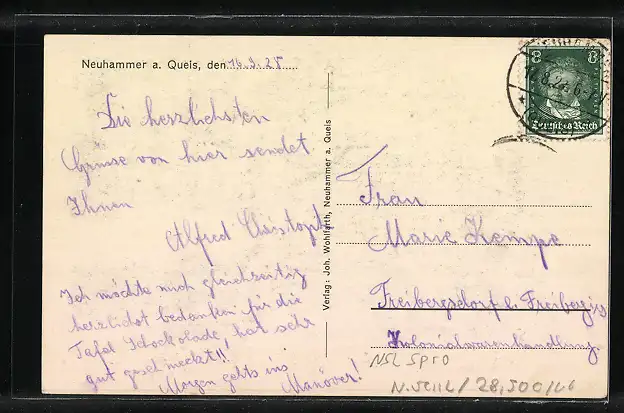 Neuhammer a. Queis, den 16.9.28
Die herzlichsten
Grüsse von hier sendet
Ihnen
Alfred Christoph
Ich möchte mich gleichzeitig
herzlichst bedanken für die
Tafel Schockolade, hat sehr
gut geschmeckt!!
Morgen gehts ins
Manöver!
Verlag: Joh. Wohlfarth, Neuhammer a. Queis
8 8
Deutsches Reich
Frau
Marie Kempe
Freibergsdorf b. Freiberg i/s
Kolonialwarenhandlung
NSL SPRO
28,500/